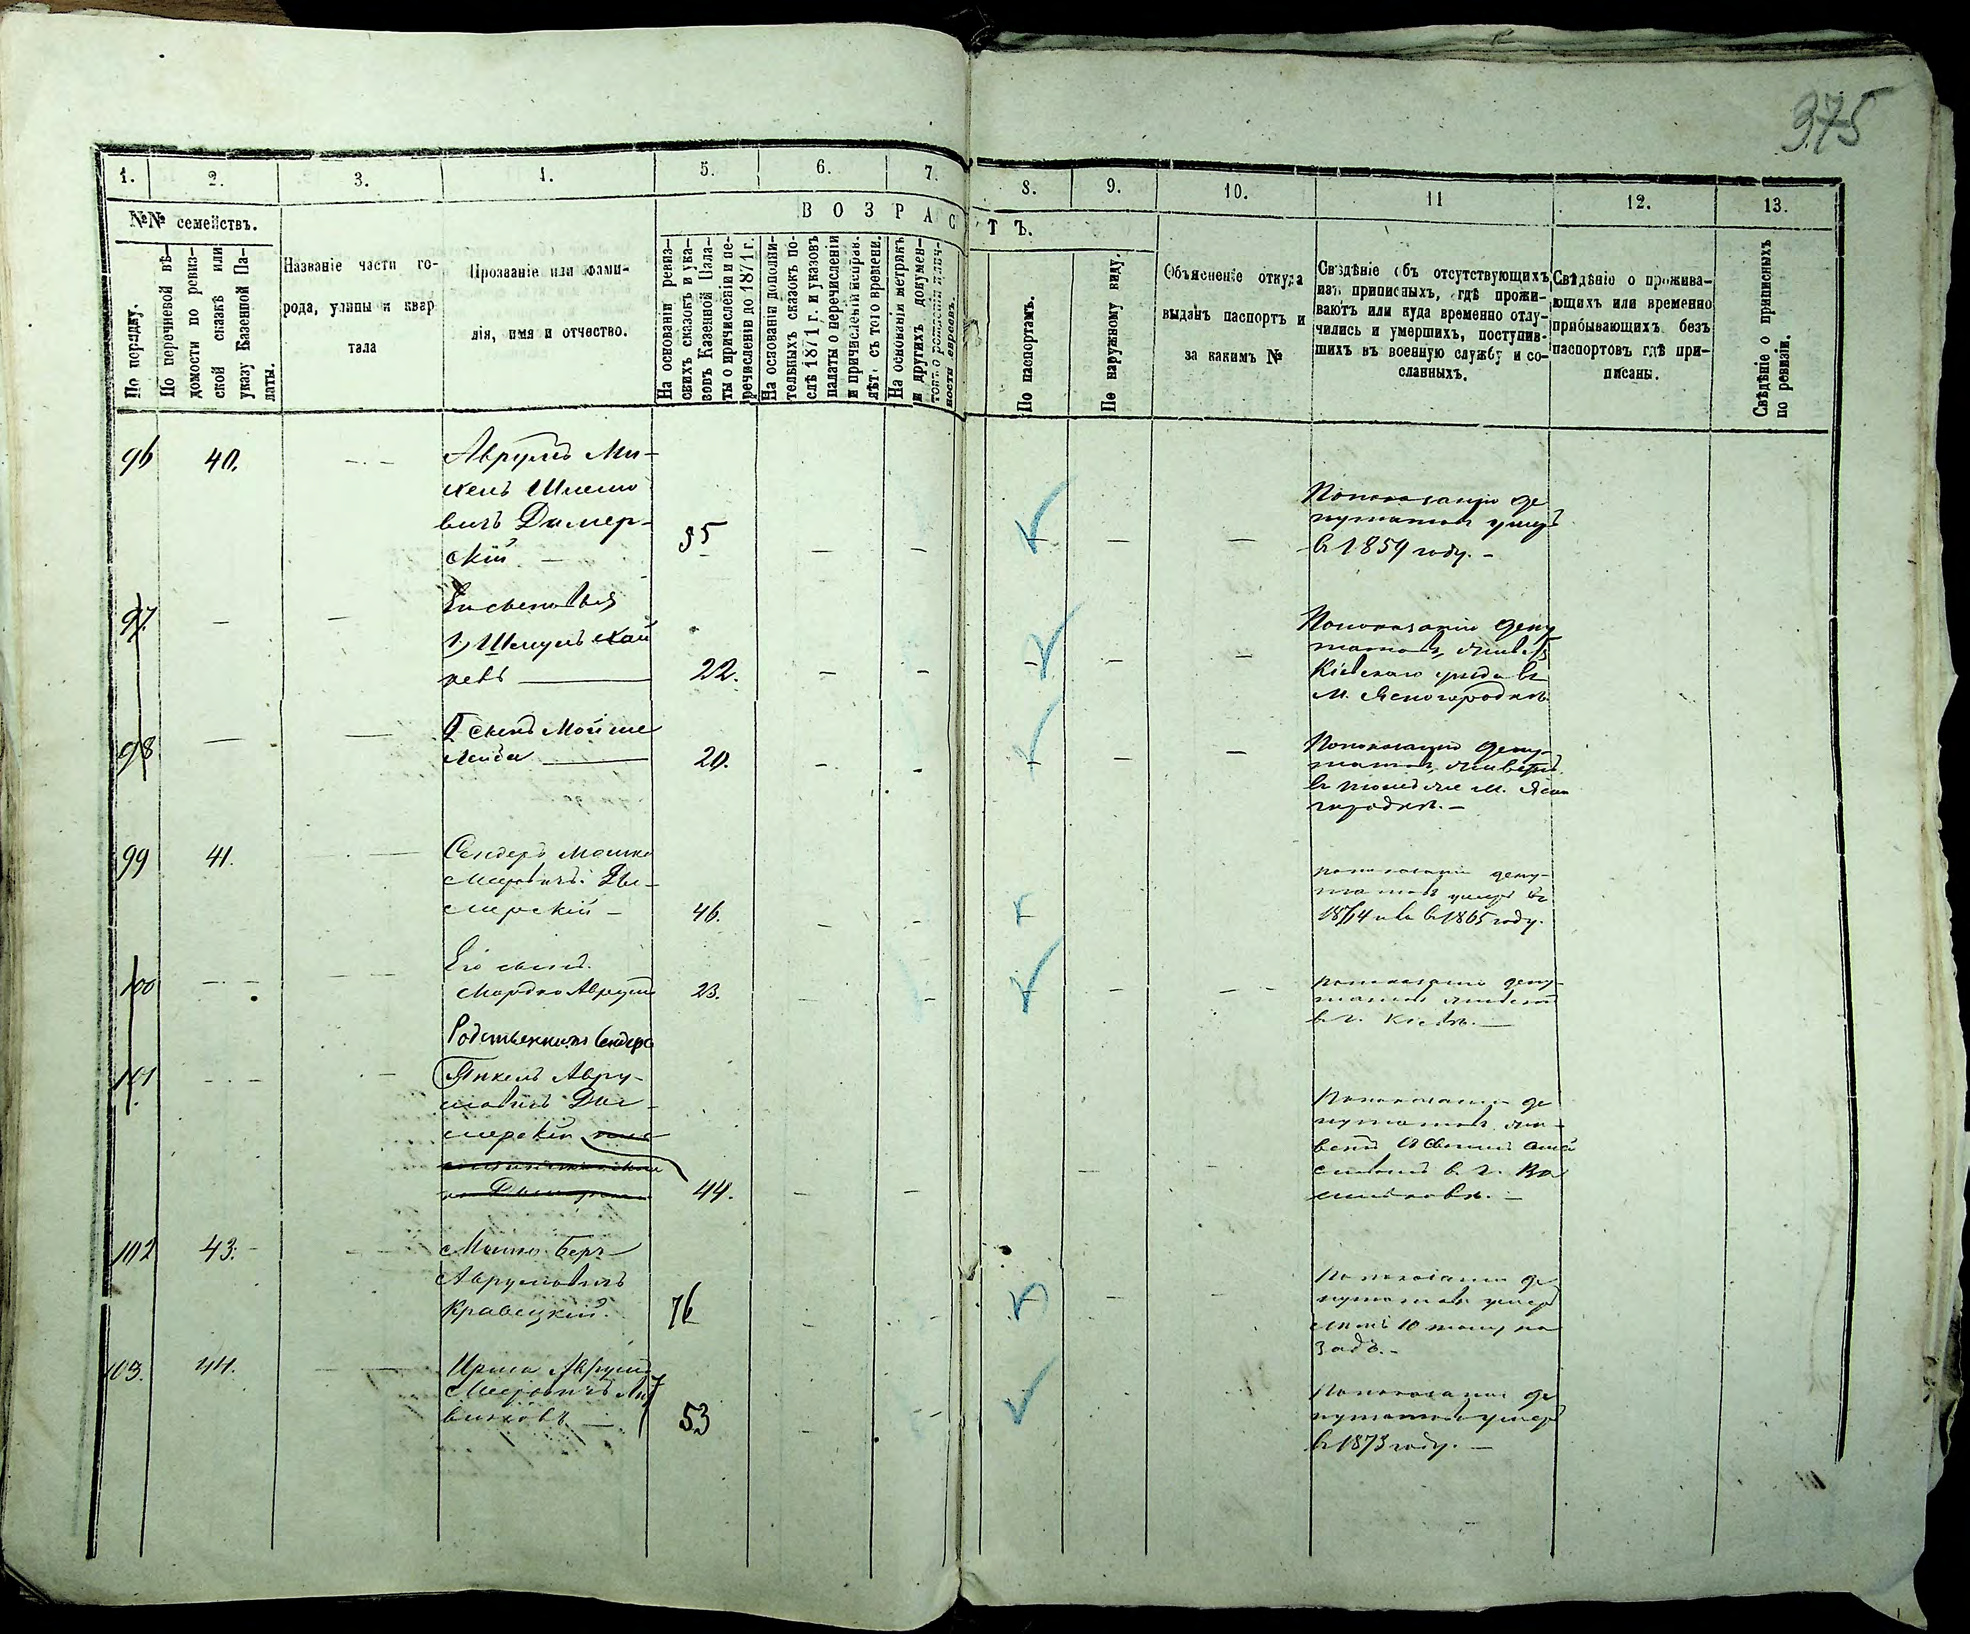 375
1.
2.
3.
4.
5.
6.
7.
8.
9.
10.
11
12.
13.
№№ семействъ.
ВОЗРАСТЪ.
По порядку.
По перечневой вѣ-
домости по ревиз-
ской сказкѣ или
указу Казенной Па-
латы.
Названіе части го-
рода, улицы и квар
тала
Прозваніе или фами-
лія, имя и отчество.
На основаніи ревиз-
скихъ сказокъ и ука-
зовъ Казенной Пала-
ты о причисленіи и пе-
речисленіи до 1871 г.
На основаніи дополни-
тельныхъ сказокъ по-
слѣ 1871 г. и указовъ
палаты о перечисленіи
и причисленій исправ.
лѣтъ съ того времени.
На основаніи метрикъ
и другихъ докумен-
товъ о
ности евреевъ.
По паспортамъ.
По наружному виду.
Объясненіе откуда
выданъ паспортъ и
за какимъ №
Свѣдѣніе объ отсутствующихъ
изъ приписныхъ, гдѣ прожи-
ваютъ или куда временно отлу-
чились и умершихъ, поступив-
шихъ въ военную службу и со-
сланныхъ.
Свѣдѣніе о прожива-
ющихъ или временно
прибывающихъ безъ
паспортовъ гдѣ при-
писаны.
Свѣдѣніе о приписныхъ
по ревизіи.
96 40.
Аврумъ Ми-
хель Шлемо
вичъ Димер-
скій — 35
По показанію де
путатовъ умеръ
въ 1859 году. -
97.
Его сыновья
1, Шмуль Хай
22.
По показанію депу
татовъ, живетъ
Кіевскаго уѣзда въ
м. Ясногородкѣ.
98
2 сынъ Мойше
Лейба — 20.
По показанію депу-
татовъ, живетъ
въ томъ же м. Ясно
городкѣ. -
99 41.
Сендеръ Мошко
Меровичъ Ды-
мерскій - 46.
По показанію депу-
татовъ умеръ въ
1864 или въ 1865 году.
100
Его сынъ
Мордко Аврумъ 23.
По показанію депу-
татовъ живетъ
въ г. Кіевѣ. —
Родственникъ Сендера
101
Янкель Авру-
мовичъ Ды-
мерскій
44.
По показанію де
путатовъ жи-
ветъ со своимъ
въ г. Ва
сильковѣ. —
102 43.
Мошко Беръ
Аврумовичъ
Кравецкій. 76
По показанію де
путатовъ умеръ
лѣтъ 10 тому на
задъ. -
103. 44.
Аврумъ
Меровичъ
53
По показанію де
путатовъ умеръ
въ 1873 году. —